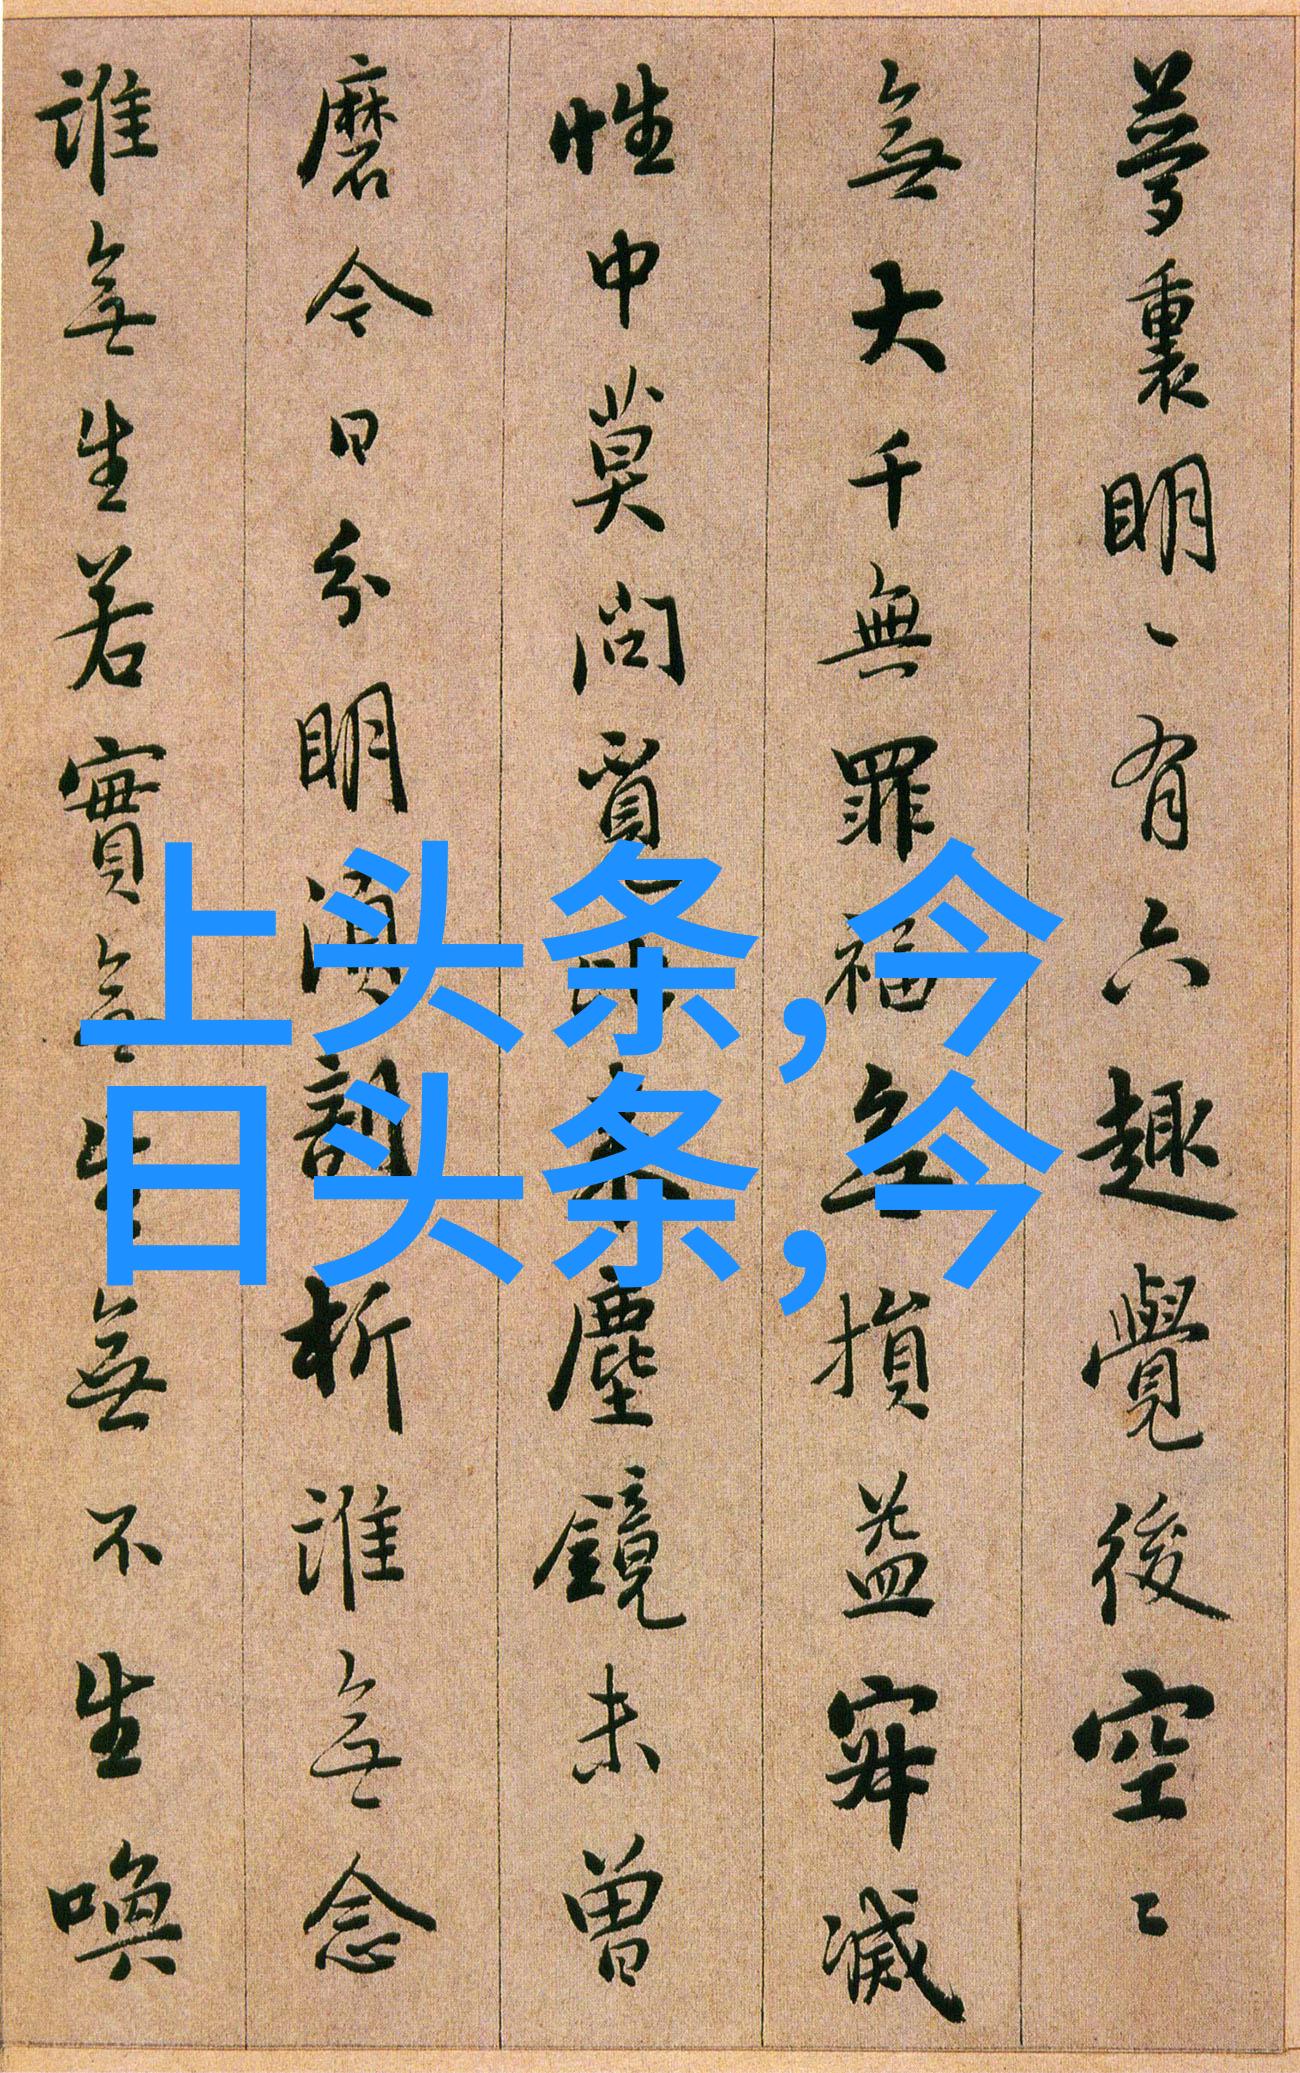 夢裏明〻有六趣覺後空〻
無大千無罪福無損益寂滅
性中莫問覓比来塵鏡未曾
磨今日分明須剖析誰無念
誰無生若實無生無不生喚
上头条,今
日头条,今